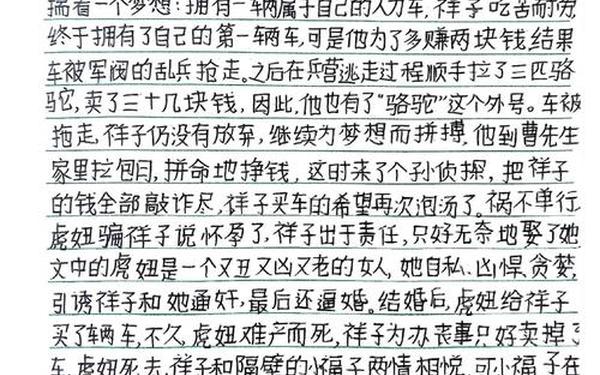 揣着一个梦想：拥有一辆属于自己的人力车，祥子吃苦耐劳，
终于拥有了自己的第一辆车，可是他为了多赚两块钱，结果
车被军阀的乱兵抢走。之后在兵营逃走过程顺手拉了三匹骆
驼，卖了三十几块钱，因此，他也有了“骆驼”这个外号。车被
拖走，祥子仍没有放弃，继续为梦想而拼搏，他到曹先生
家里拉包月，拼命地挣钱，这时来了个孙侦探，把祥子
的钱全部敲诈尽，祥子买车的希望再次泡汤了。祸不单行，
虎妞骗祥子说怀孕了，祥子出于责任，只好无奈地娶了她
文中的虎妞是一个又丑又凶又老的女人，她自私、凶悍、贪婪，
引诱祥子和她通奸，最后还逼婚。结婚后，虎妞给祥子
买了辆车，不久，虎妞难产而死，祥子为办丧事只好卖掉了
车，虎妞死去，祥子和隔壁的小福子两情相悦，可小福子在